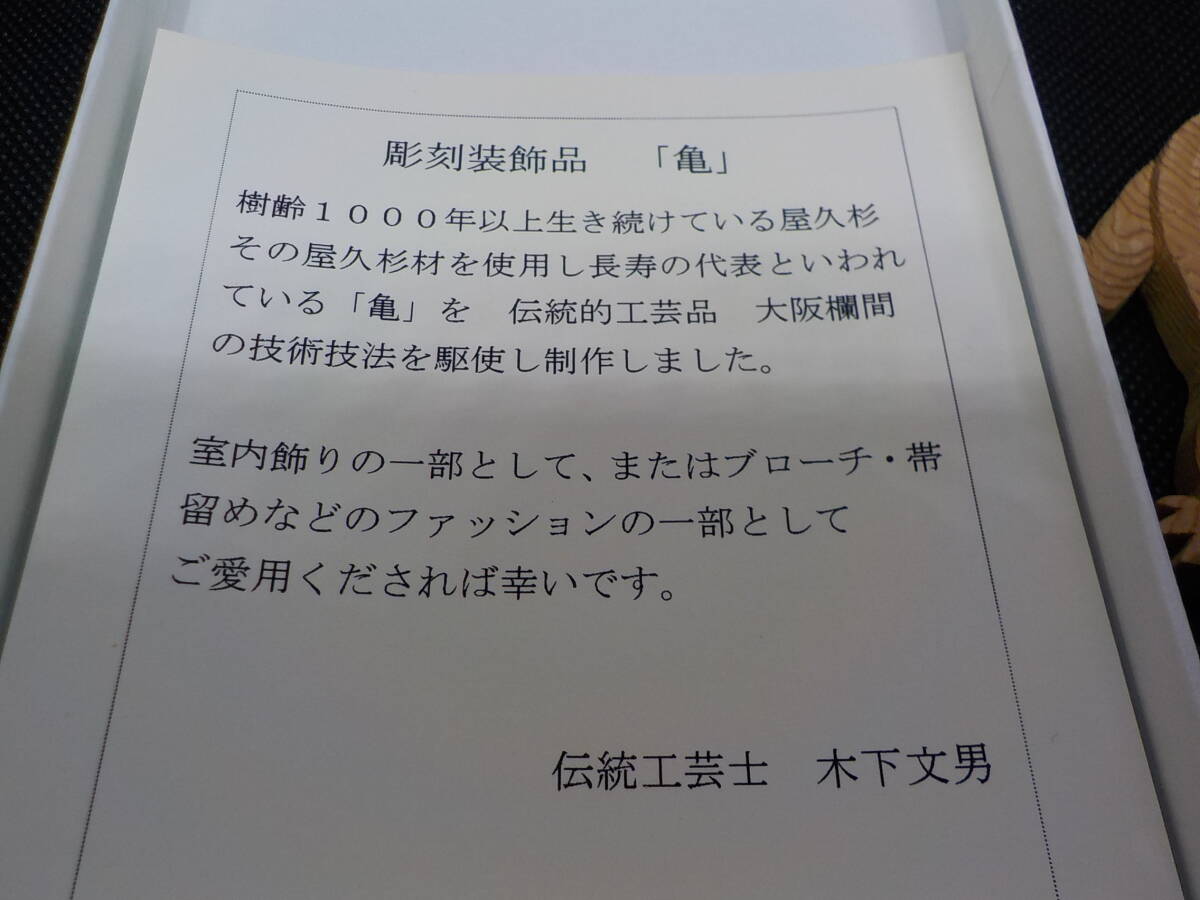 彫刻装飾品　「亀」
樹齢１０００年以上生き続けている屋久杉
その屋久杉材を使用し長寿の代表といわれ
ている「亀」を　伝統的工芸品　大阪欄間
の技術技法を駆使し制作しました。
室内飾りの一部として、またはブローチ・帯
留めなどのファッションの一部として
ご愛用くだされば幸いです。
伝統工芸士　木下文男